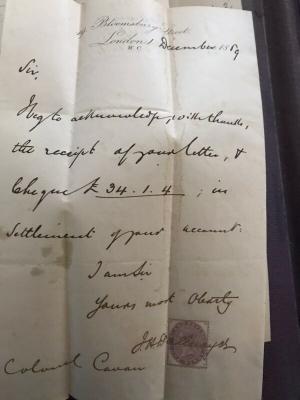 Bloomsbury Street
London
W.C.
December 1889
Sir,
I beg to acknowledge, with thanks,
the receipt of your letter, &
Cheque £ 34.1.4; in
settlement of your account.
I am Sir
Yours most Obtly
Colonel Cavan